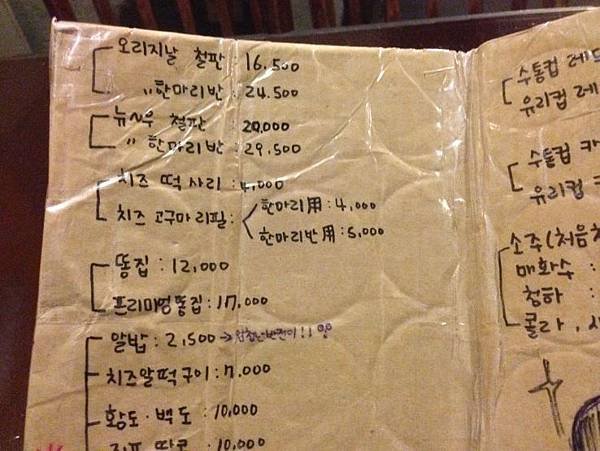 오리지날 철판 : 16,500
〃한마리반 : 24,500
뉴~우 철판 : 20,000
〃 한마리반 : 29,500
치즈 떡 사리 : 4,000
치즈 고구마 리필 :
한마리用 : 4,000
한마리반用 : 5,000
똥집 : 12,000
프리미엄똥집 : 17,000
알밥 : 2,500 →
치즈알떡구이 : 7,000
황도 · 백도 : 10,000
: 10,000
수통컵 레드
유리컵 레
수통컵 카
유리컵
소주(처음처
매화수 :
청하 :
콜라 , 사